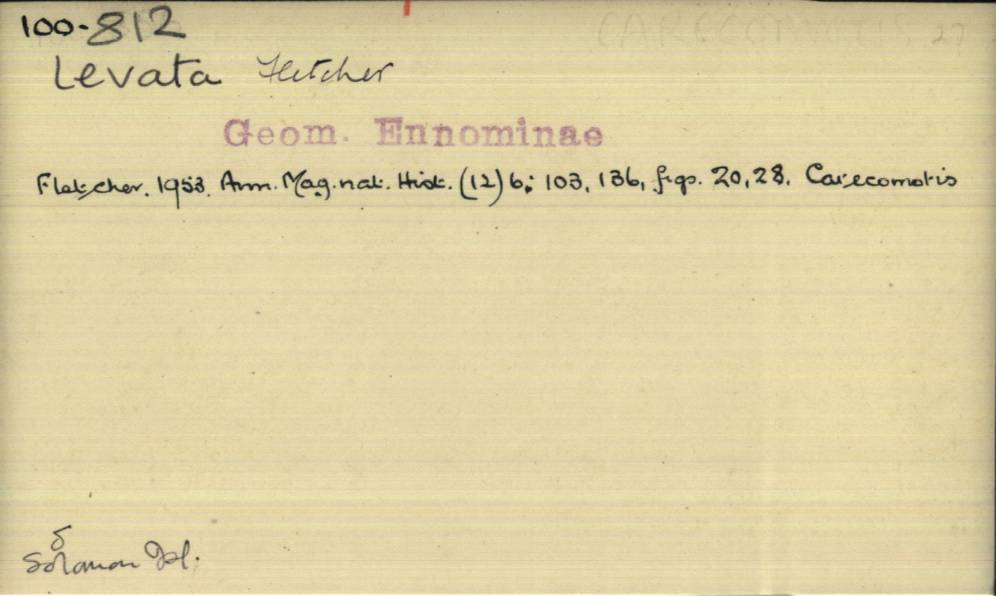 100-812
CARECOMOTIS 27
Levata Fletcher
Geom. Ennominae
Fletcher. 1953. Ann. Mag. nat. Hist. (12) 6: 103, 136, figs. 20, 28. Carecomotis
Solomon Isl.